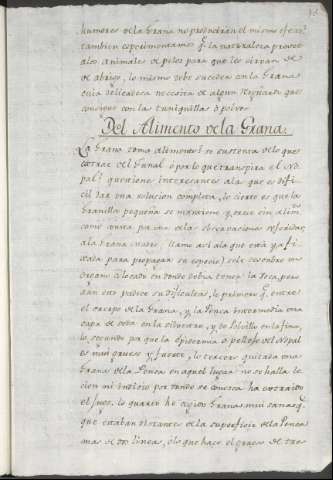 humores de la Grana no producirán el mismo efecto
tambien experimentamos q.e la naturaleza proveé
alos animales de pelos para que les sirvan de
de abrigo, lo mismo debe suceder en la Grana
cuia delicadeza necesita de algun resguardo que
consiguen con las tuniquillas ò polvo.
Del Alimento dela Grana.
La Grana toma alimento ô se sustenta delo que
extrae del Nunal ô por lo que transpira el No
pal? question interesantes ala que es difi
cil dar una solucion completa, lo cierto es que la
Granilla pequeña se mantiene y crece sin alim.to
como consta por una de las observaciones referidas,
ala Grana Madre (llamo asi ala que está ya fi
xada para propagar su especie) se le descubre un
organo colocado en donde debia tener la boca, pero
aun esto padece su dificultad, lo primero q.e entre
el cuerpo dela Grana, y la Penca intermedia una
capa de seda en la silvestre, y de Polvillo en la fina,
lo segundo por que la Epidermis ô pellejo del Nopal
es mui grueso y fuerte, lo tercero quitada una
Grana dela Penca en aquel lugar no se halla
cion ni indicio por donde se conosca ha extraido
el Jugo, lo quarto he cojido Granas mui sanas q.e
que estaban distantes de la superficie dela Penca
mas de dos lineas, ô lo que hace el grueso de dos